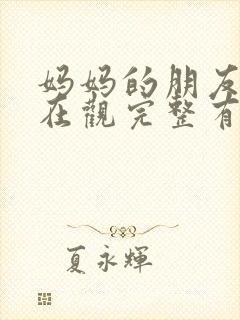 妈妈的朋友
在觀完整有
夏永輝